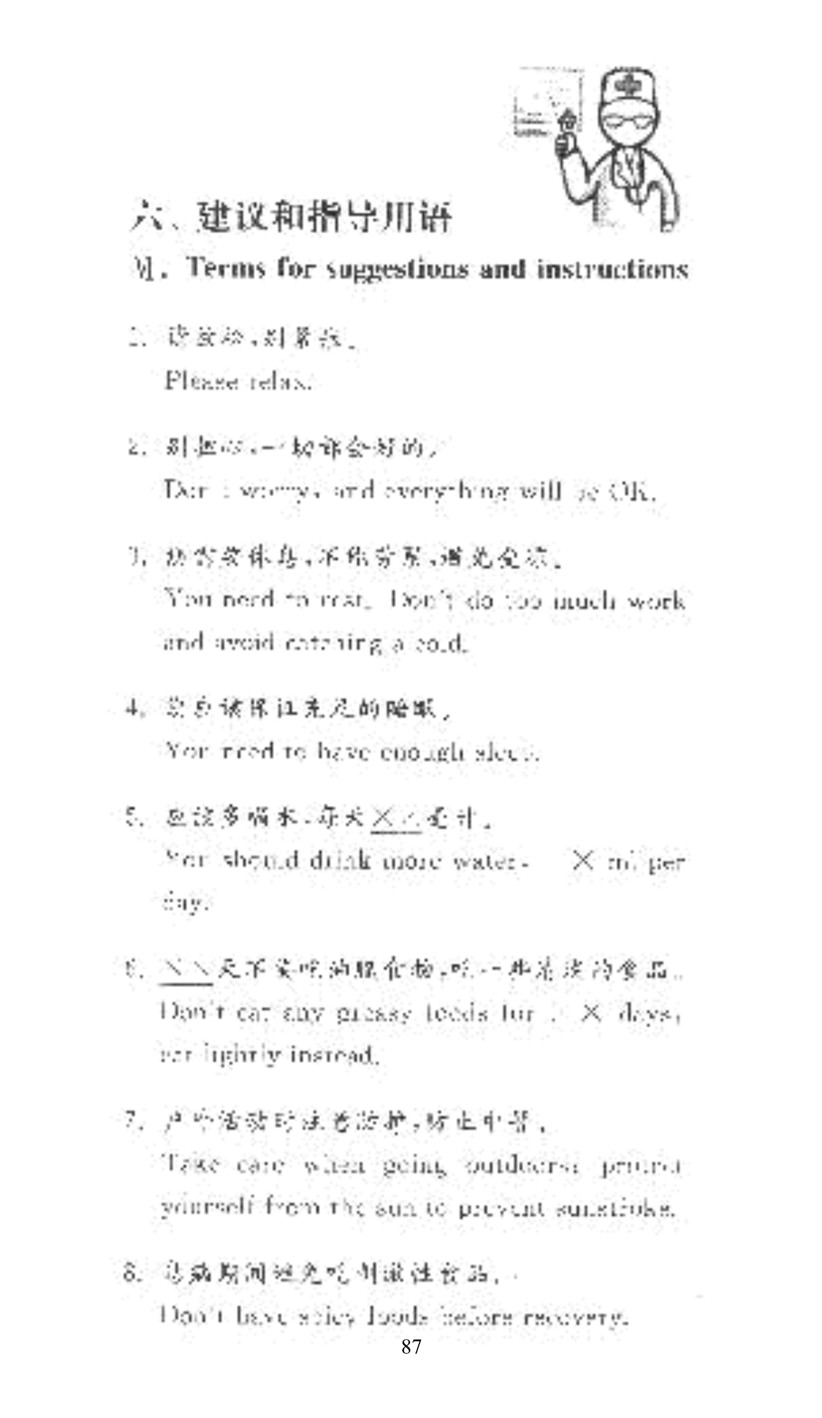 六、建议和指导用语
Ⅵ. Terms for suggestions and instructions
1. 请放松,别紧张。
Please relax.
2. 别担心,一切都会好的。
Don't worry, and everything will be OK.
3. 您需要休息,不能劳累,避免受凉。
You need to rest. Don't do too much work
and avoid catching a cold.
4. 您应该保证充足的睡眠。
You need to have enough sleep.
5. 应该多喝水,每天××毫升。
You should drink more water, × ml per
day.
6. ××天不要吃油腻食物,吃一些清淡的食品。
Don't eat any greasy foods for × days,
eat lightly instead.
7. 户外活动时注意防护,防止中暑。
Take care when going outdoors; protect
yourself from the sun to prevent sunstroke.
8. 患病期间避免吃刺激性食品。
Don't have spicy foods before recovery.
87